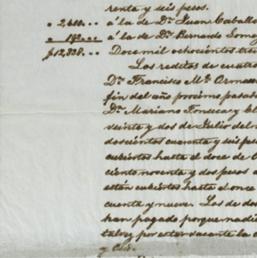 renta y seis pesos.
" 2,600... " á la de Dn. Juan Caballe
" 192... " á la de Dn. Bernardo Gome
$12,838... " Doce mil ochocientos tre
Los reditos de cuatro
Dn. Francisco Ma. Ormae
fin del año procsimo pasado
Dn. Mariano Fonseca y el
veinte y dos de Julio del
doscientos cuarenta y seis pesos
cubiertos hasta el doce de
ciento noventa y dos pesos a
están cubiertos hasta el once
cuenta y nueve. Los de dos
han pagado, porque nadie
talvez por estar vacante la c